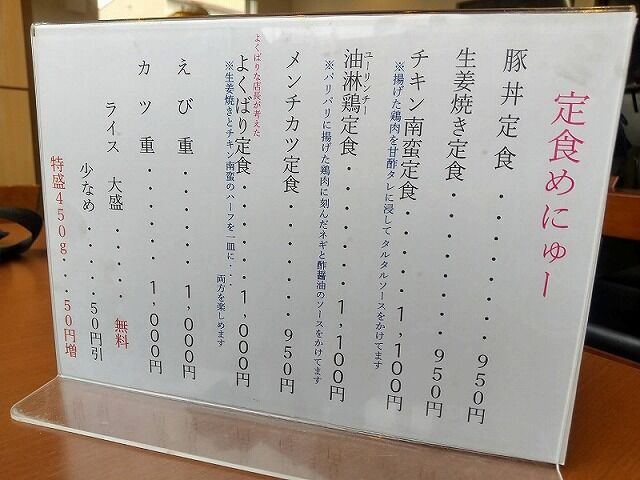 定食めにゅー
豚丼定食・・・・・・・950円
生姜焼き定食・・・・・・・950円
チキン南蛮定食・・・・・1,100円
※揚げた鶏肉を甘酢タレに浸してタルタルソースをかけてます
ユーリンチー
油淋鶏定食・・・・・・・1,100円
※パリパリに揚げた鶏肉に刻んだネギと酢醤油のソースをかけてます
メンチカツ定食・・・・・・950円
よくばりな店長が考えた
よくばり定食・・・・・・1,000円
※生姜焼きとチキン南蛮のハーフを一皿に・・・両方を楽しめます
えび重・・・・・・1,000円
カツ重・・・・・・1,000円
ライス 大盛・・・・無料
少なめ・・・・・50円引
特盛450g・・・50円増